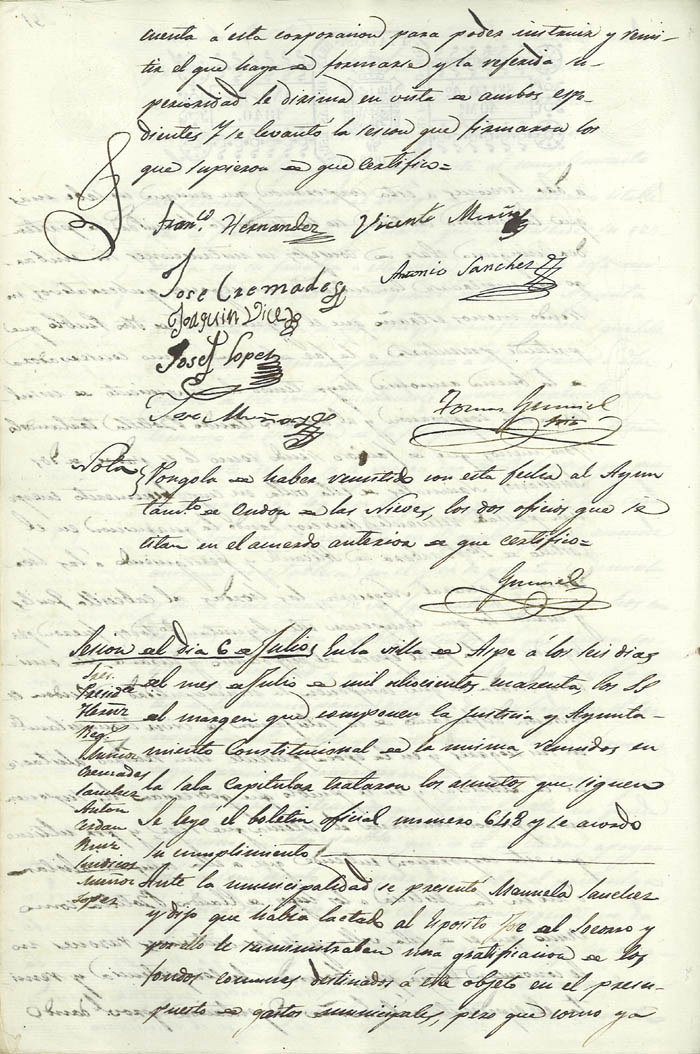 cuenta á esta corporacion para poder instruir y remi-
tir el que haya de formarse y la referida su-
perioridad le dirima en vista de ambos espe-
dientes Y se levantó la sesion que firmaron los
que supieron de que certifico=
Franco. Hernandez Vicente Muñoz
Jose Cremades Antonio Sanchez
Joaquin Vicez
Josef Lopez
Jose Muñoz Tomas Gumiel
Srio
Nota Pongola de haber remitido con esta fecha al Ayun
tamto. de Ondon de las Nieves, los dos oficios que se
citan en el acuerdo anterior de que certifico=
Gumiel
Sesion del dia 6 de Julio En la villa de Aspe á los seis dias
del mes de Julio de mil ochocientos cuarenta, los SS
del margen que componen la Justicia y Ayunta-
miento Constitucional de la misma, reunidos en
la sala capitular trataron los asuntos que siguen
Se leyó el boletin oficial numero 648 y se acordó
su cumplimiento
Sres.
Presidte
Hernz
Regs.
Cremades
Sanchez
Anton
Cerdan
Ruiz
Sindicos
Muñoz
Lopez
Ante la municipalidad se presentó Manuela Sanchez
y dijo que habia lactado al Esposito Jose del Socorro y
por ello le suministraban una gratificacion de los
fondos comunes destinados á este objeto en el presu-
puesto de gastos municipales, pero que como ya